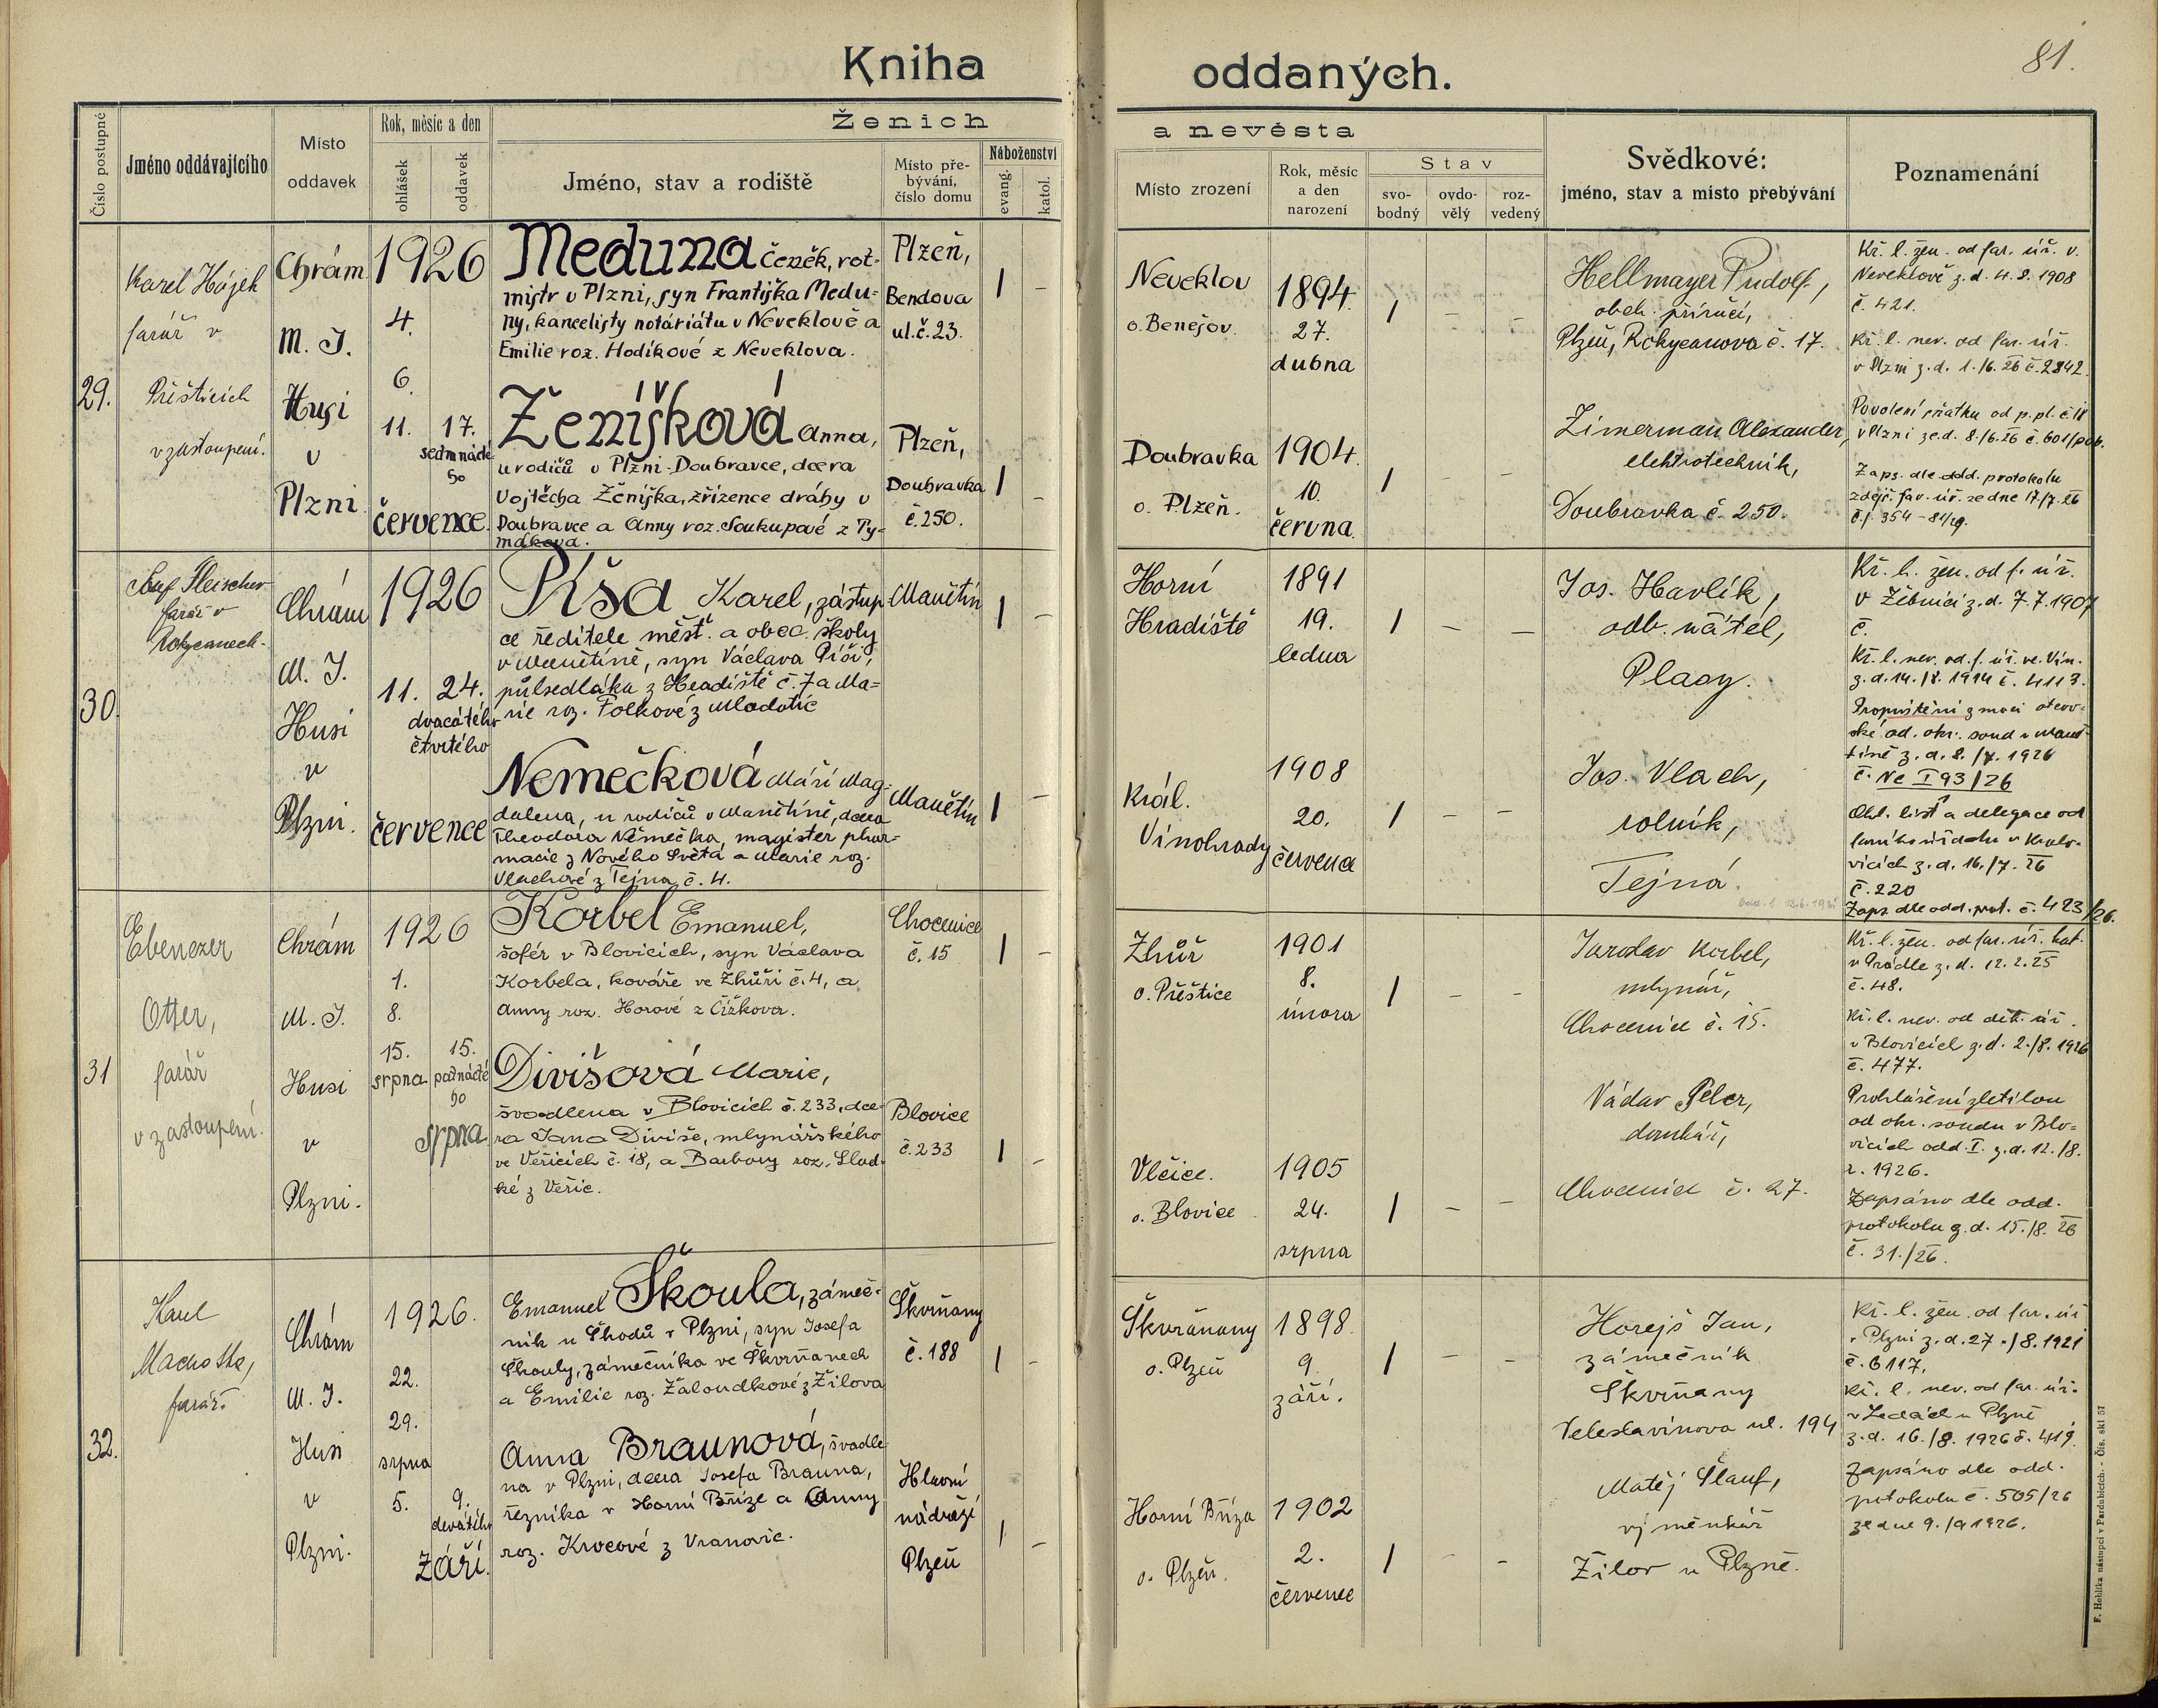 Kniha oddaných.
81.
Číslo postupné
Jméno oddávajícího
Místo
oddavek
Rok, měsíc a den
ohlášek
oddavek
Ženich
a nevěsta
Jméno, stav a rodiště
Místo pře-
bývání,
číslo domu
Náboženství
evang.
katol.
Místo zrození
Rok, měsíc
a den
narození
Stav
svo-
bodný
ovdo-
vělý
roz-
vedený
Svědkové:
jméno, stav a místo přebývání
Poznamenání
29.
Karel Hájek
farář v
Přešticích
v zastoupení.
Chrám
M. J.
Husi
v
Plzni.
1926
4.
6.
11. 17.
sedmnácté
ho
července.
Meduna Čeněk, rot-
mistr v Plzni, syn Františka Medu-
ny, kancelisty notáriátu v Neveklově a
Emilie roz. Hodíkové z Neveklova.
Plzeň,
Bendova
ul. č. 23.
Ženíšková Anna,
u rodičů v Plzni-Doubravce, dcera
Vojtěcha Ženíška, zřízence dráhy v
Doubravce a Anny roz. Soukupové z Ty-
mákova.
Plzeň,
Doubravka
č. 250.
Neveklov
o. Benešov.
1894.
27.
dubna
Doubravka
o. Plzeň.
1904.
10.
června.
Hellmayer Rudolf,
obch. příručí,
Plzeň, Rokycanova č. 17.
Zimerman Alexander,
elektrotechnik,
Doubravka č. 250.
Kř. l. žen. od far. úř. v.
Neveklově z. d. 4. 8. 1908
č. 421.
Kř. l. nev. od far. úř.
v Plzni z. d. 1./6. 26 č. 2842.
Povolení sňatku od p. pl. č. 18
v Plzni ze d. 8./6. 26 č. 601/pob.
Zaps. dle odd. protokolu
zdejš. far. úř. ze dne 17./7. 26
č. j. 354 - 81/29.
30.
Josef Fleischer
farář v
Rokycanech.
Chrám
M. J.
Husi
v
Plzni.
1926
11. 24.
dvacátého
čtvrtého
července
Píša Karel, zástup
ce ředitele měšť. a obec. školy
v Manětíně, syn Václava Píši,
půlsedláka z Hradiště č. 7 a Ma-
rie roz. Folkové z Mladotic
Manětín
Nemečková Máří Mag-
dalena, u rodičů v Manětíně, dcera
Theodora Němečka, magister phar-
macie z Nového Světa a Marie roz.
Vlachové z Tejna č. 4.
Manětín
Horní
Hradiště
1891
19.
ledna
Král.
Vinohrady
1908
20.
června
Jos. Havlík,
odb. učitel,
Plasy.
Jos. Vlach,
rolník,
Tejná.
Kř. l. žen. od f. úř.
v Žebnici z. d. 7. 7. 1907
č.
Kř. l. nev. od. f. úř. ve. Vin.
z. d. 14./8. 1914 č. 4113.
Propuštění z moci otcov-
ské od. okr. soud v Maně
tíně z. d. 8./7. 1926
č. Nc I 93/26
Ohl. list a delegace od
farního úřadu v Kralo-
vicích z. d. 16./7. 26
č. 220
Zaps. dle odd. prot. č. 423/26.
31
Ebenezer
Otter,
farář
v zastoupení.
Chrám
M. J.
Husi
v
Plzni.
1926
1.
8.
15. 15.
srpna patnácté
ho
srpna
Korbel Emanuel,
šofér v Blovicích, syn Václava
Korbela, kováře ve Zhůři č. 4, a
Anny roz. Horové z Čížkova.
Chocenice
č. 15
Divišová Marie,
švadlena v Blovicích č. 233, dce-
ra Jana Diviše, mlynářského
ve Veřicích č. 18, a Barbory roz. Slad-
ké z Veřic.
Blovice
č. 233
Zhůř
o. Přeštice
1901
8.
února
Vlčice.
o. Blovice
1905
24.
srpna
Jaroslav Korbel,
mlynář,
Chocenice č. 15.
Václav Pelcr,
domkář,
Chocenice č. 27.
Kř. l. žen. od far. úř. kat.
v Prádle z. d. 12. 2. 25
č. 48.
Kř. l. nev. od děk. úř.
v Blovicích z. d. 2./8. 1926
č. 477.
Prohlášení zletilou
od okr. soudu v Blo-
vicích odd. I. z. d. 12./8.
r. 1926.
Zapsáno dle odd.
protokolu z. d. 15./8. 26
č. 31./26.
32.
Karel
Machotka,
farář.
Chrám
M. J.
Husi
v
Plzni.
1926.
22.
29.
srpna
5. 9.
devátého
září.
Emanuel Škoula, zámeč-
ník u Škodů v Plzni, syn Josefa
Škouly, zámečníka ve Škvrňanech
a Emilie roz. Žaloudkové z Žilova
Škvrňany
č. 188
Anna Braunová, švadle
na v Plzni, dcera Josefa Brauna,
řezníka v Horní Bříze a Anny
roz. Krocové z Vranovic.
Hlavní
nádraží
Plzeň
Škvrňany
o. Plzeň
1898.
9.
září.
Horní Bříza
o. Plzeň.
1902
2.
července
Horejš Jan,
zámečník
Škvrňany
Veleslavínova ul. 194
Matěj Šlauf,
výměnkář
Žilov u Plzně.
Kř. l. žen. od far. úř.
v Plzni z. d. 27./8. 1921
č. 6117.
Kř. l. nev. od far. úř.
v Ledcích u Plzně
z. d. 16./8. 1926 č. 419.
Zapsáno dle odd.
protokolu č. 505/26
ze dne 9./9 1926.
F. Hoblíka nástupci v Pardubicích. - Čís. skl 57